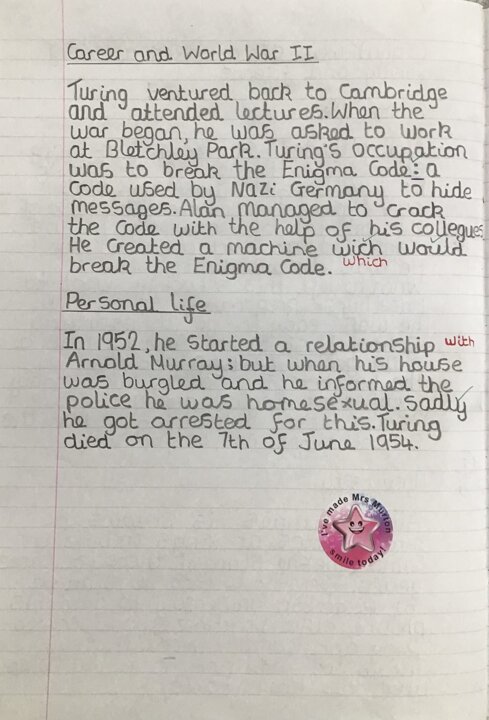 Career and World War II
Turing ventured back to Cambridge
and attended lectures. When the
war began, he was asked to work
at Bletchley Park. Turing's occupation
was to break the Enigma Code: a
code used by Nazi Germany to hide
messages. Alan managed to crack
the code with the help of his collegues
He created a machine wich would
break the Enigma Code. which
Personal life
In 1952, he started a relationship with
Arnold Murray; but when his house
was burgled and he informed the
police he was homesexual. Sadly
he got arrested for this. Turing
died on the 7th of June 1954.
I've made Mrs Murton
smile today!